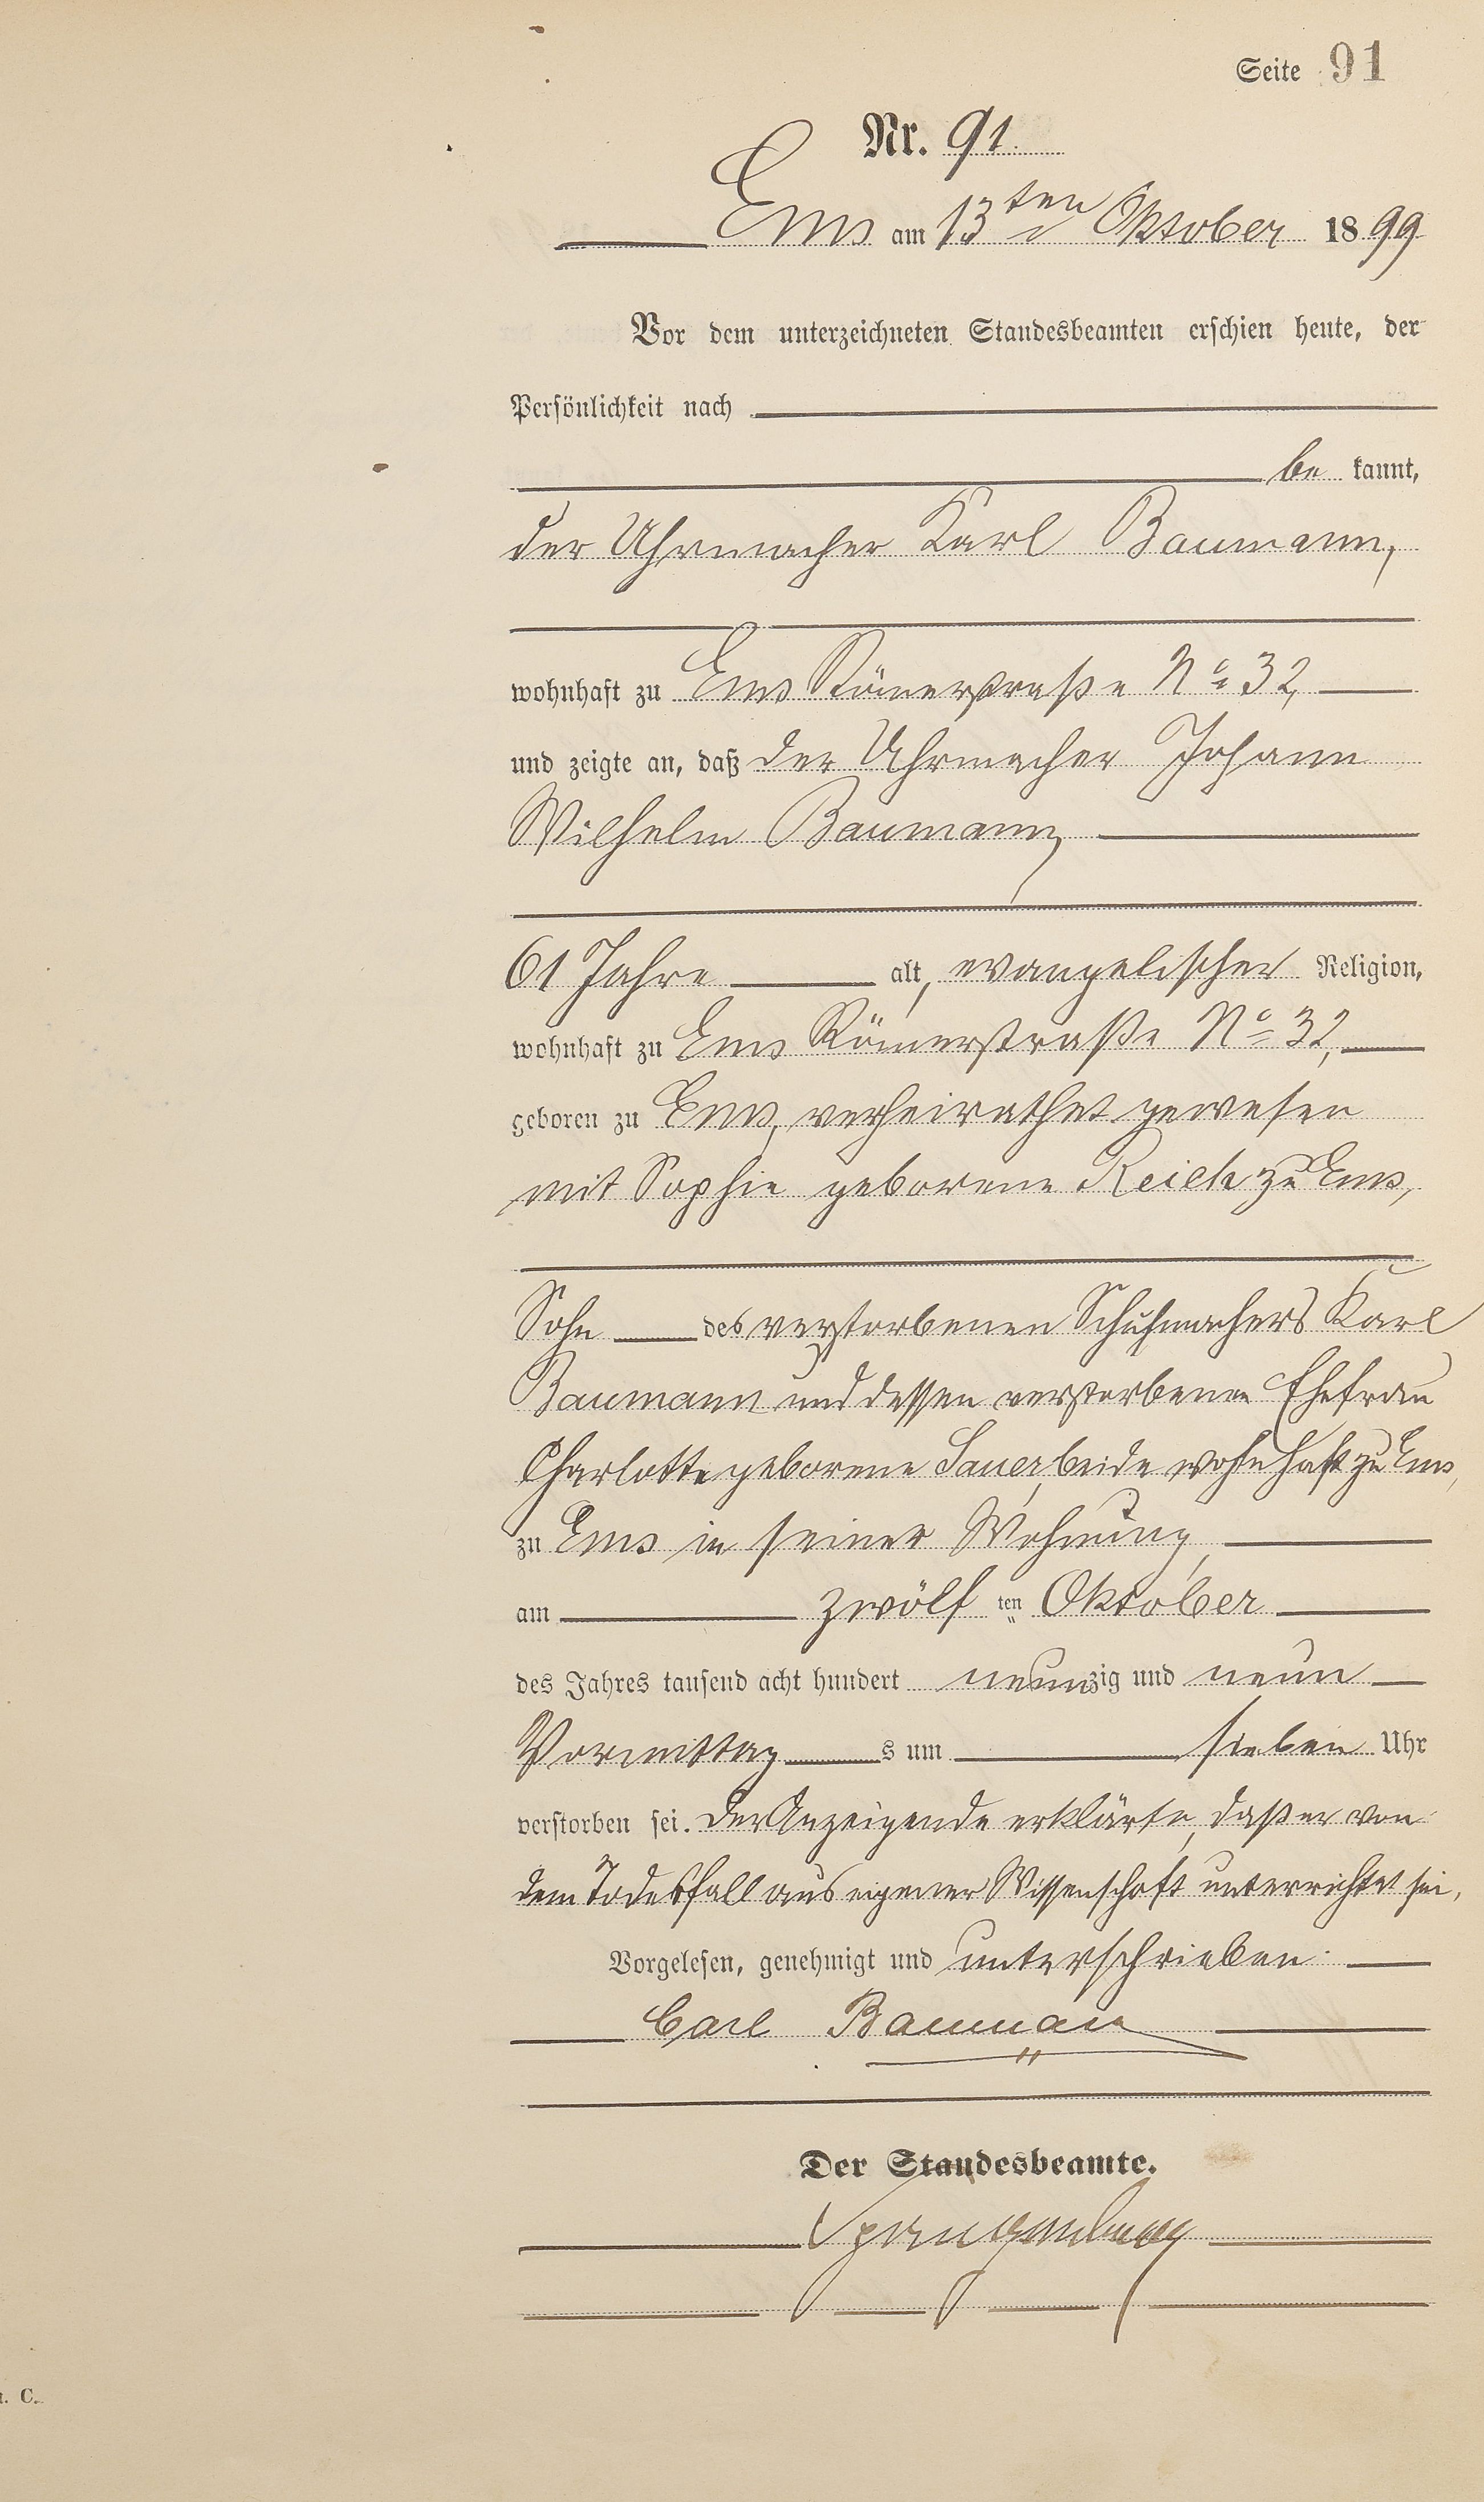 Seite 91
Nr. 91.
Ems am 13ten Oktober 1899
Vor dem unterzeichneten Standesbeamten erschien heute, der
Persönlichkeit nach
be kannt,
der Uhrmacher Karl Baumann,
wohnhaft zu Ems Römerstraße No 32,
und zeigte an, daß der Uhrmacher Johann
Wilhelm Baumann,
61 Jahre alt, evangelischer Religion,
wohnhaft zu Ems Römerstraße No 32,
geboren zu Ems, verheirathet gewesen
mit Sophie geborene Reich zu Ems,
Sohn des verstorbenen Schuhmachers Karl
Baumann und dessen verstorbenen Ehefrau
Charlotte geborene Sauer, beide wohnhaft zu Ems,
zu Ems in seiner Wohnung,
am zwölf ten Oktober
des Jahres tausend acht hundert neunzig und neun
Vormittag s um sieben Uhr
verstorben sei. Der Anzeigende erklärte, daß er von
dem Todesfall aus eigener Wissenschaft unterrichtet sei.
Vorgelesen, genehmigt und unterschrieben.
Carl Bauman
Der Standesbeamte.
Spangenberg
C.